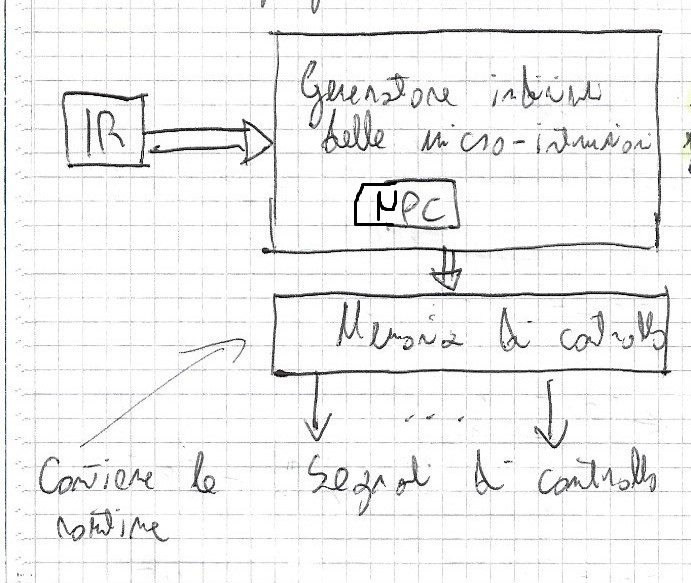 IR
Generatore indirizzi
delle micro-istruzioni
μPC
Memoria di controllo
...
Contiene le
routine
Segnali di controllo